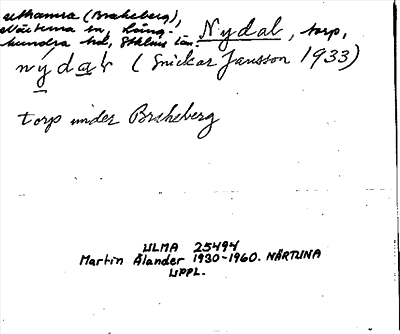 uthamra (Brakeberg),
Närtuna sn, Lång-
hundra hd, Sthlms län. Nydal, torp,
nýdaḷ (Snickar Jansson 1933)
torp under Brakeberg
ULMA 25494
Martin Ålander 1930-1960. NÄRTUNA
UPPL.